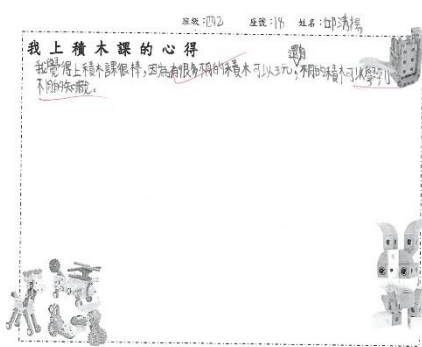 班級:四2 座號:18 姓名:邱清楊
我上積木課的心得
還有
我覺得上積木課很棒,因為有很多不同的積木可以玩,不同的積木可以學到
不同的知識。